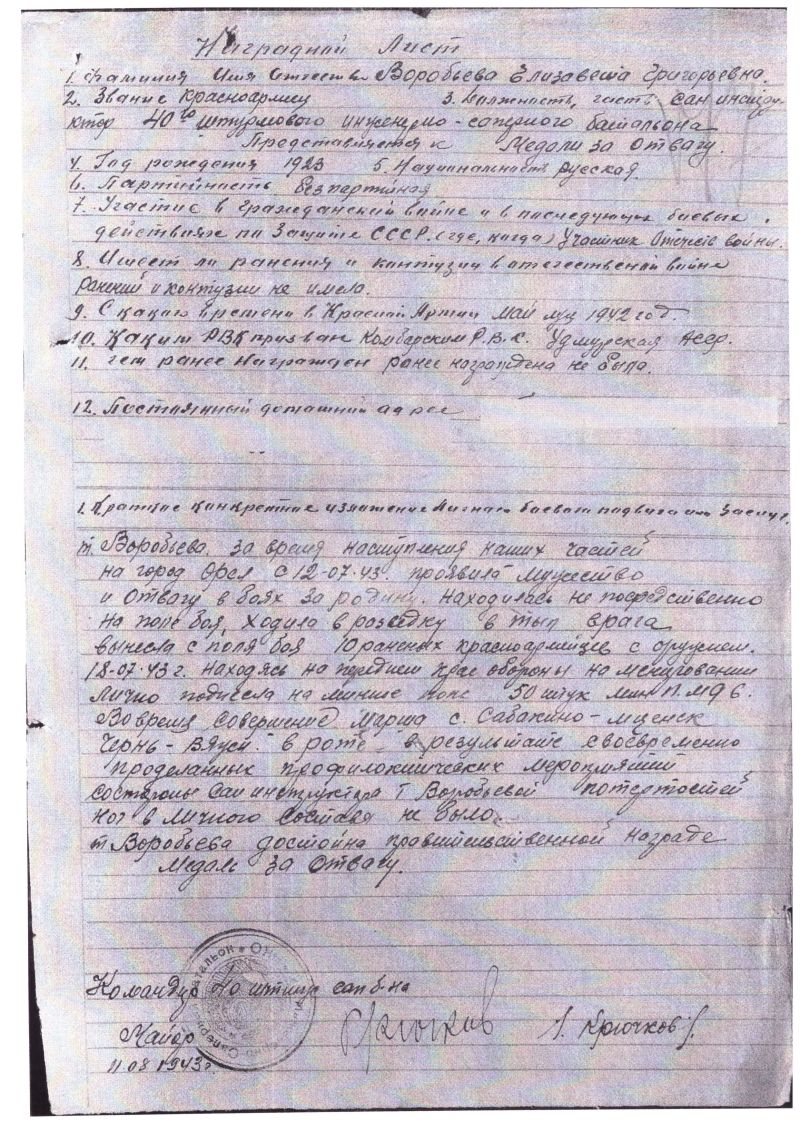 Наградной Лист
1. Фамилия Имя Отчество Воробьева Елизавета Григорьевна.
2. Звание Красноармеец 3. Должность, часть Сан инстру-
ктор 40го штурмового инженерно-саперного батальона
Представляется к Медали за Отвагу.
4. Год рождения 1923 5. Национальность русская
6. Партийность Безпартийная
7. Участие в гражданской войне и в последующих боевых
действиях по Защите СССР. (где, когда) Участник Отечеств войны.
8. Имеет ли ранения и контузии в отечественой войне
ранений и контузии не имела.
9. С какого времени в Красной Армии май м-ц 1942 год.
10. Каким РВК призван Камбарским Р.В.К. Удмурская АССР.
11. чем ранее Награжден ранее награждена не была.
12. Постоянный домашний адрес
1. Краткое конкретное изложение личного боевого подвига или заслуг.
т. Воробьева. за время наступления наших частей
на город Орел с 12-07-43. проявила мужество
и Отвагу в боях за родину. находилась не посредственно
на поле боя, ходила в розведку в тыл врага
вынесла с поля боя 10 раненых красноармейцев с оружием.
18-07-43 г. находясь на переднем крае обороны на минировании
Лично поднесла на минное поле 50 штук мин П.МД 6.
Вовремя Совершение марша с. Сабакино - мценск
Чернь - Вяжи. в роте в результате своевременно
проделанных профилактических
состороны Сан инструктора Т Воробьевой потертостей
ног в личного состава не было.
т Воробьева достойна правительственной награде
Медаль за Отвагу.
Командир 40 штинж сап б-на
Майор Крючков
11.08.1943 г.